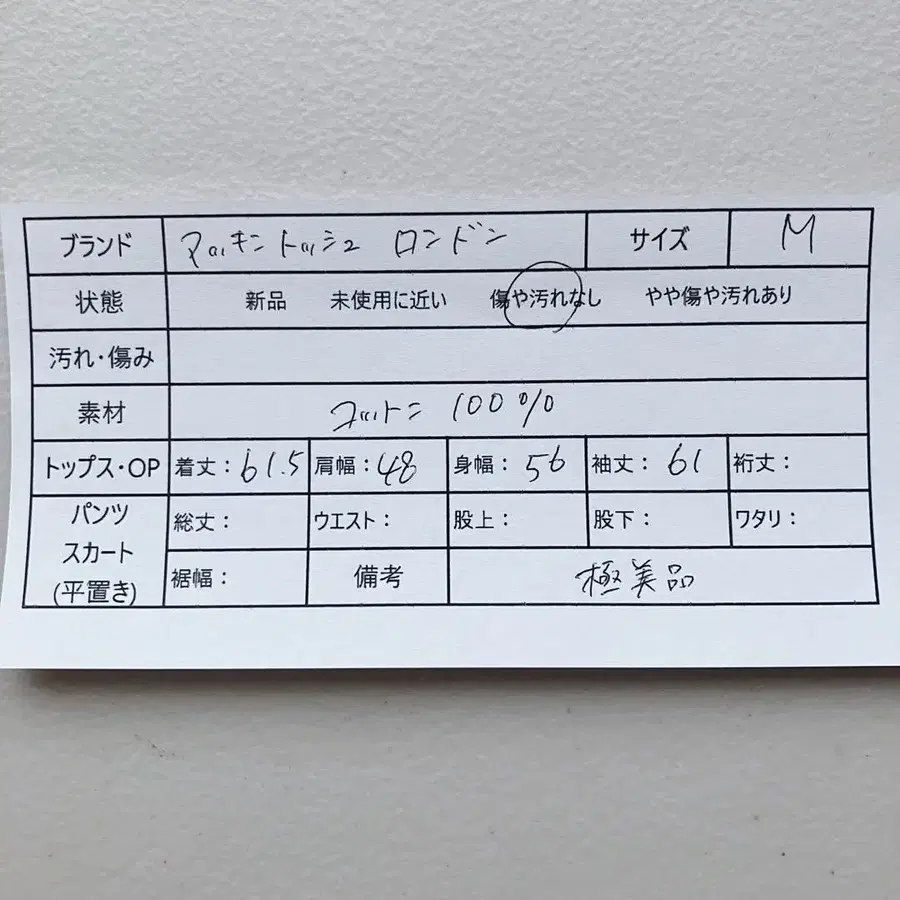 ブランド マッキントッシュ ロンドン サイズ M
状態 新品 未使用に近い 傷や汚れなし やや傷や汚れあり
汚れ・傷み
素材 コットン 100%
トップス・OP 着丈：61.5 肩幅：48 身幅：56 袖丈：61 裄丈：
パンツ
スカート
(平置き)
総丈： ウエスト： 股上： 股下： ワタリ：
裾幅： 備考 極美品